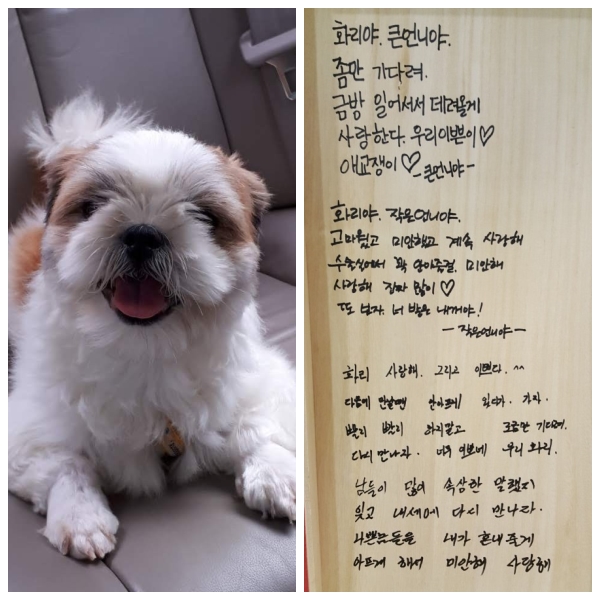 화리야. 큰언니야.
좀만 기다려.
금방 일어서서 데려올게
사랑한다. 우리이쁜이♡
애교쟁이♡ -큰언니야-
화리야. 작은언니야.
고마웠고 미안했고 계속 사랑해
수술실에서 꽉 안아줄걸. 미안해
사랑해 진짜 많이♡
또 보자. 너 방은 내꺼야!
-작은언니야-
화리 사랑해. 그리고 이쁘다. ^^
다음에 만날땐 안아프게 있다가. 가자.
조금만 기다려.
다시 만나자. 너무 이쁘네 우리 화리.
남들이 많이 속상한 말했지
잊고 내세에 다시 만나자.
나쁜놈들을 내가 혼내줄게
아프게 해서 미안해 사랑해